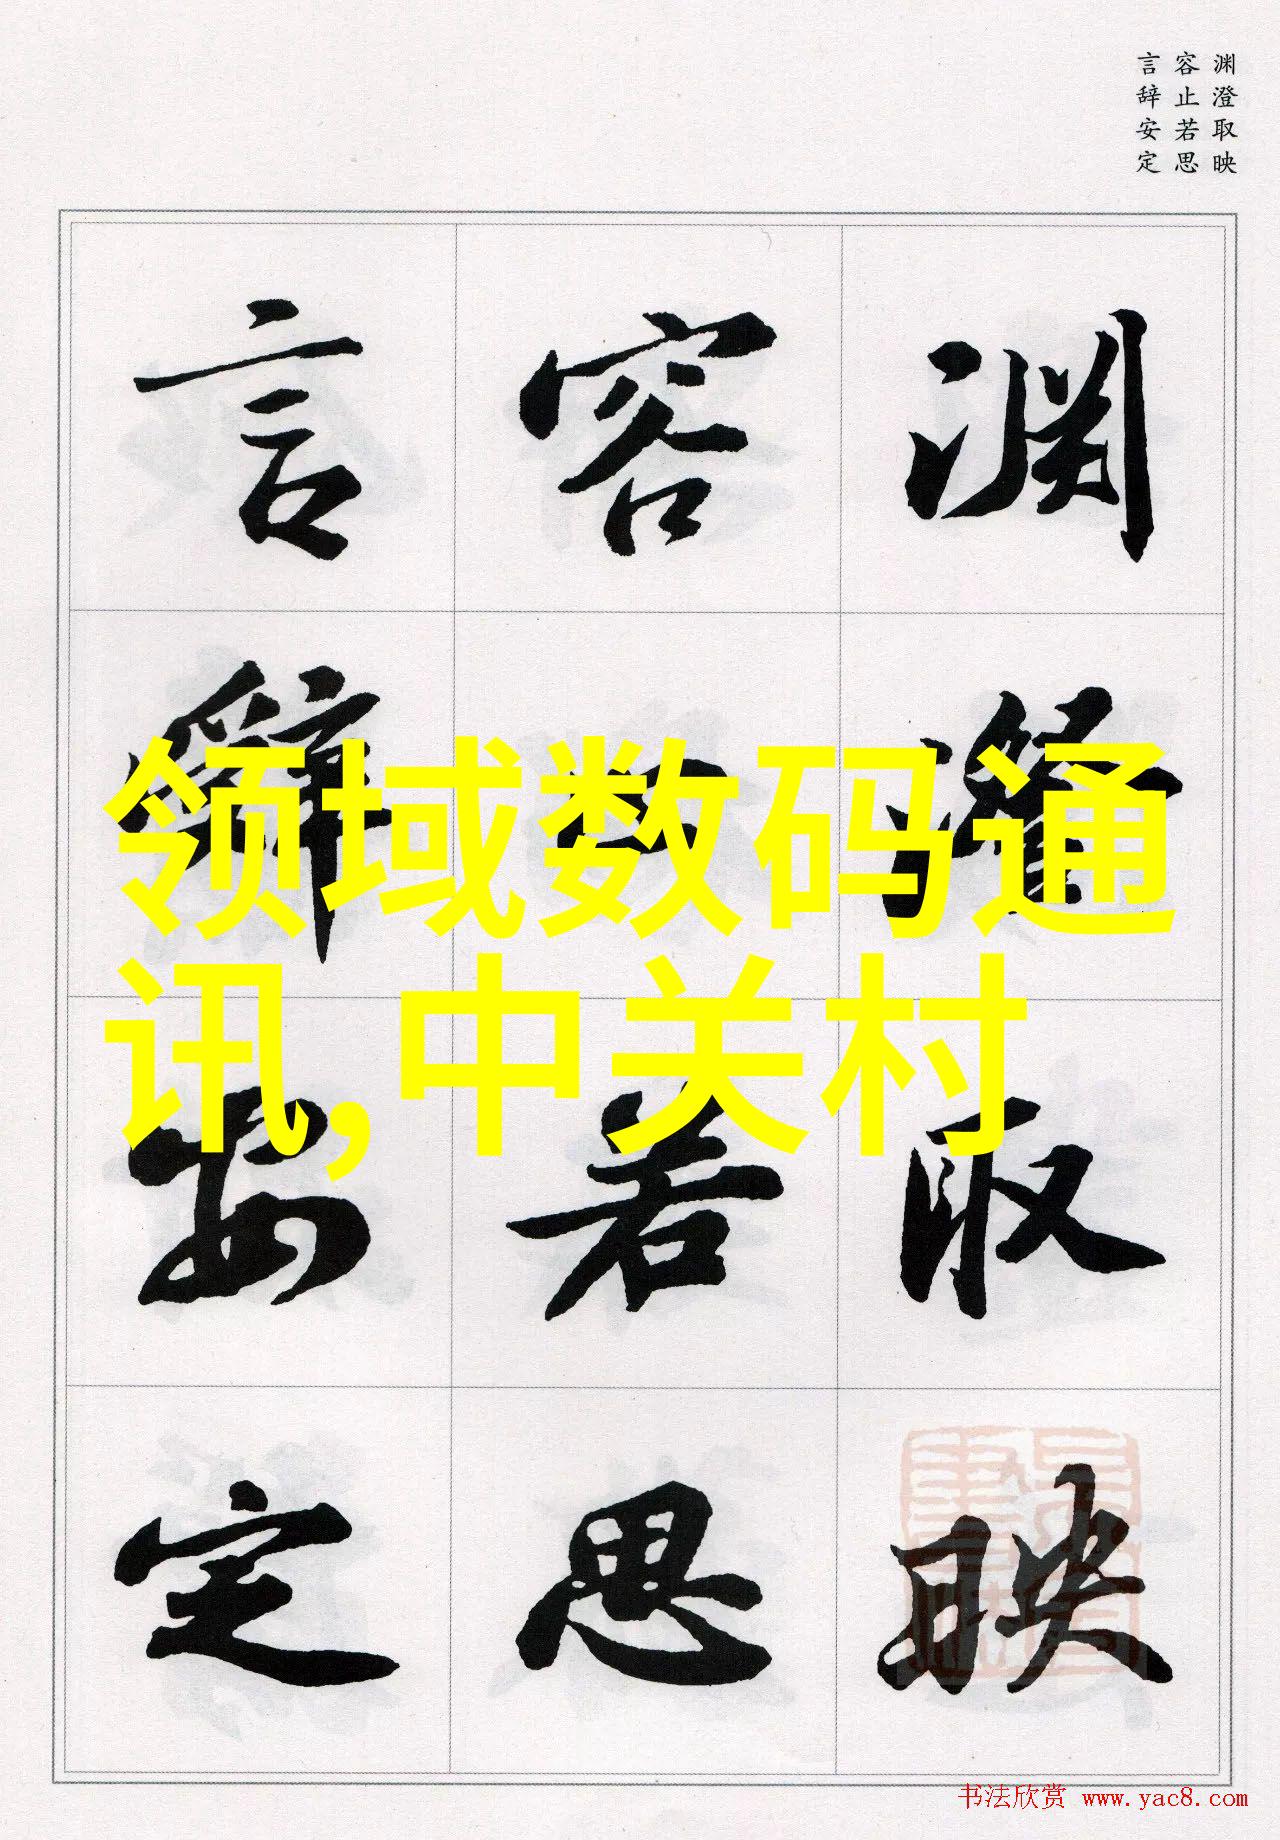 渊澄取映
容止若思
言辞安定
渊澄取映
容止若思
言辞安定
领域数码通
讯,中关村
书法欣赏 www.yac8.com